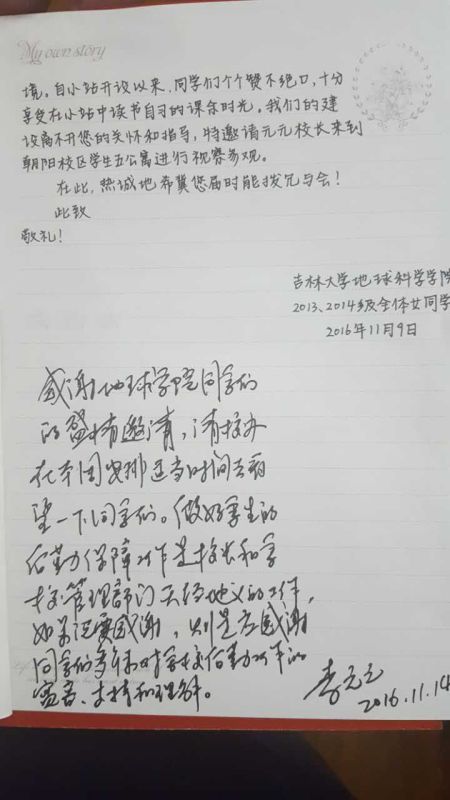 My own story
境。自小站开设以来，同学们个个赞不绝口，十分
享受在小站中读书自习的课余时光。我们的建
设离不开您的关怀和指导，特邀请元元校长来到
朝阳校区学生五公寓进行视察参观。
在此，热诚地希冀您届时能拨冗与会！
此致
敬礼！
吉林大学地球科学学院
2013、2014级全体女同学
2016年11月9日
感谢地球学院同学们
的盛情邀请，请校办
在本周安排适当时间去看
望一下同学们。做好学生的
后勤保障工作是校长和学
校管理部门天经地义的工作，
如果说要感谢，则是应感谢
同学们多年来对学校后勤工作的
宽容、支持和理解。
李元元
2016.11.14